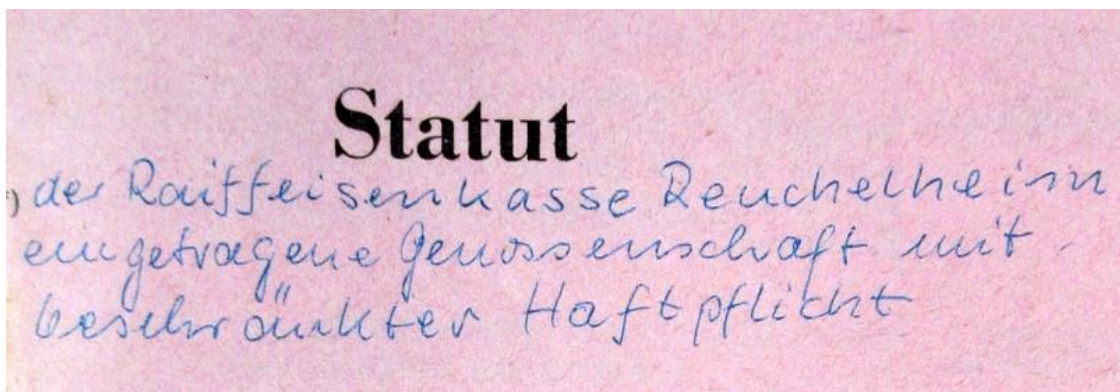 Statut
*) der Raiffeisenkasse Reuchelheim
eingetragene Genossenschaft mit
beschränkter Haftpflicht